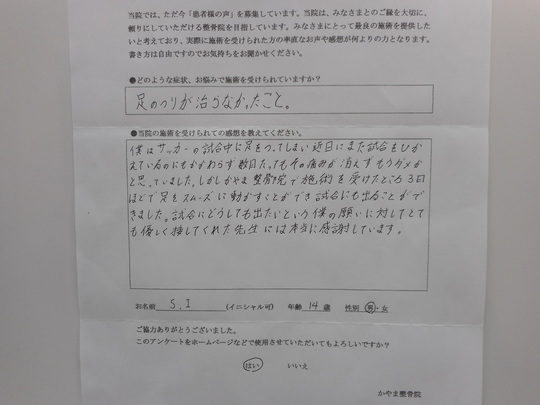 当院では、ただ今「患者様の声」を募集しています。当院は、みなさまとのご縁を大切に、
頼りにしていただける整骨院を目指しています。みなさまにとって最良の施術を提供した
いと考えており、実際に施術を受けられた方の率直なお声や感想が何よりの力となります。
書き方は自由ですのでお気持ちをお聞かせください。
●どのような症状、お悩みで施術を受けられていますか？
足のつりが治らなかったこと。
●当院の施術を受けられての感想を教えてください。
僕はサッカーの試合中に足をつってしまい近日にまた試合をひか
えているのにもかかわらず数日たってもその痛みが消えずもうダメか
と思っていました。しかしかやま整骨院で施術を受けたところ3日
ほどで足をスムーズに動かすことができ試合にも出ることがで
きました。試合にどうしても出たいという僕の願いに対してとて
も優しく接してくれた先生には本当に感謝しています。
お名前 S.I (イニシャル可) 年齢 14 歳 性別 男・女
ご協力ありがとうございました。
このアンケートをホームページなどで使用させていただいてもよろしいですか？
はい いいえ
かやま整骨院